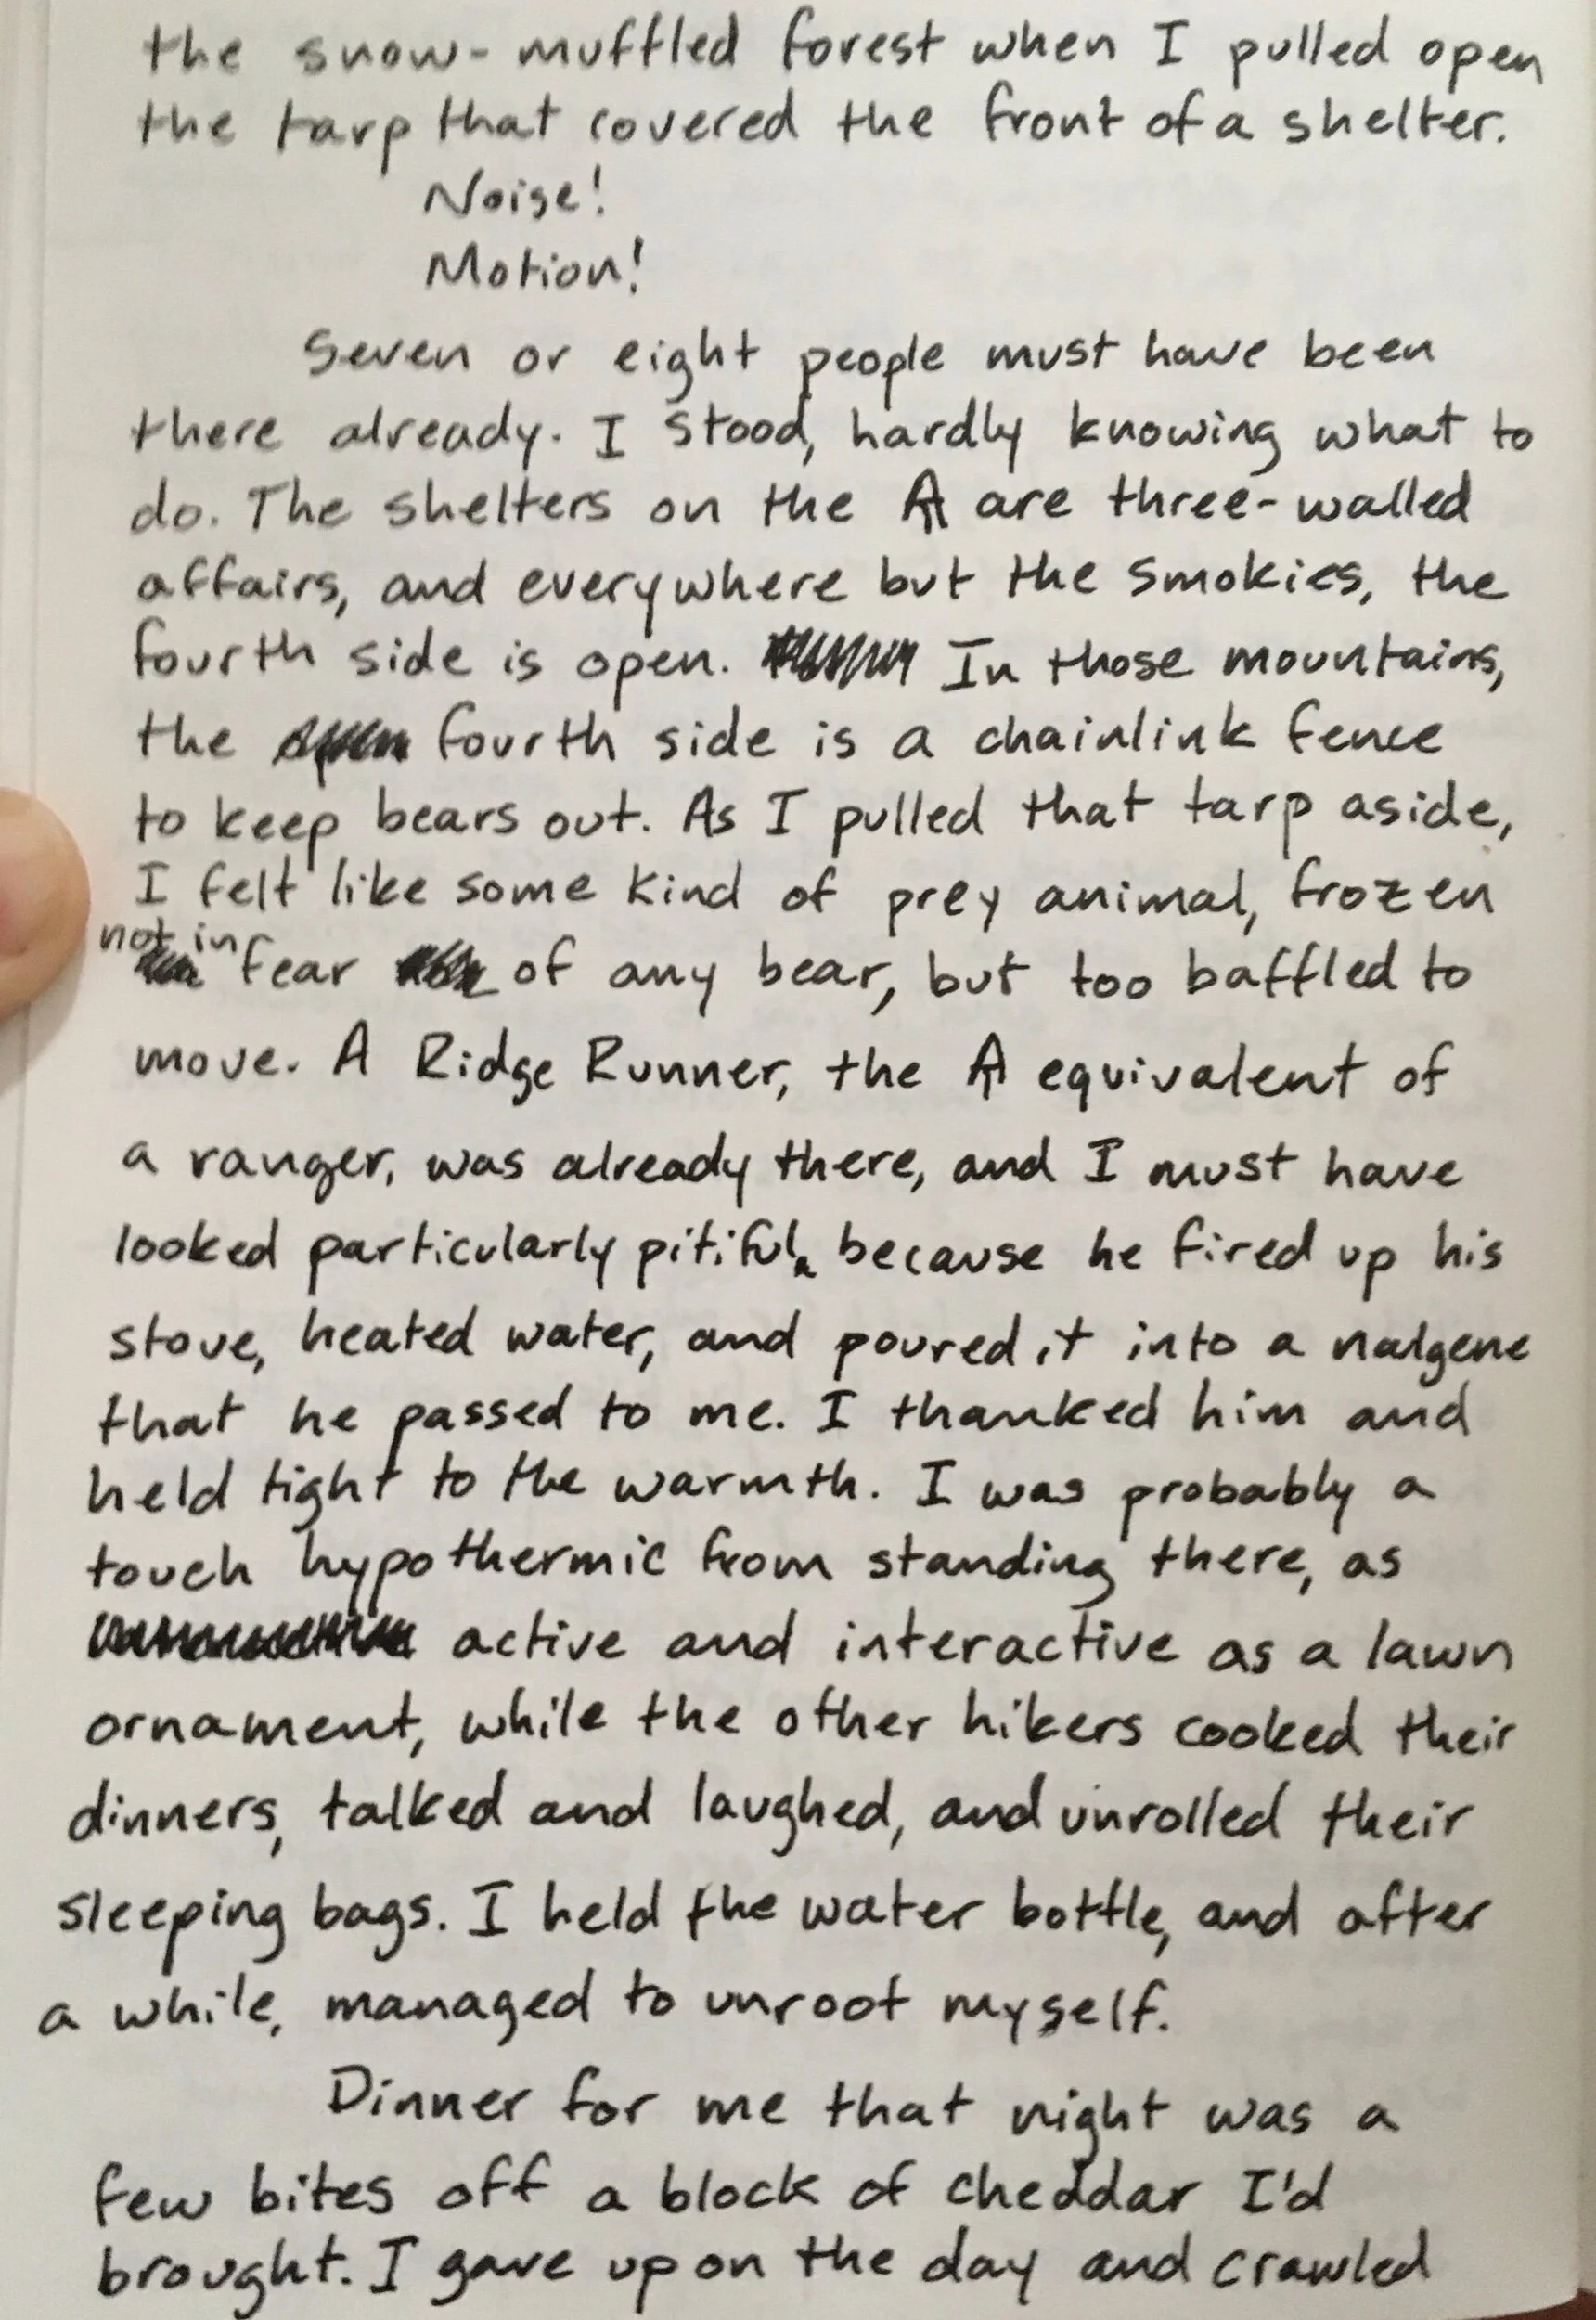 the snow-muffled forest when I pulled open
the tarp that covered the front of a shelter.
Noise!
Motion!
Seven or eight people must have been
there already. I stood, hardly knowing what to
do. The shelters on the AT are three-walled
affairs, and everywhere but the Smokies, the
fourth side is open. In those mountains,
the fourth side is a chainlink fence
to keep bears out. As I pulled that tarp aside,
I felt like some kind of prey animal, frozen
not in fear of any bear, but too baffled to
move. A Ridge Runner, the AT equivalent of
a ranger, was already there, and I must have
looked particularly pitiful, because he fired up his
stove, heated water, and poured it into a nalgene
that he passed to me. I thanked him and
held tight to the warmth. I was probably a
touch hypothermic from standing there, as
active and interactive as a lawn
ornament, while the other hikers cooked their
dinners, talked and laughed, and unrolled their
sleeping bags. I held the water bottle, and after
a while, managed to unroot myself.
Dinner for me that night was a
few bites off a block of cheddar I'd
brought. I gave up on the day and crawled